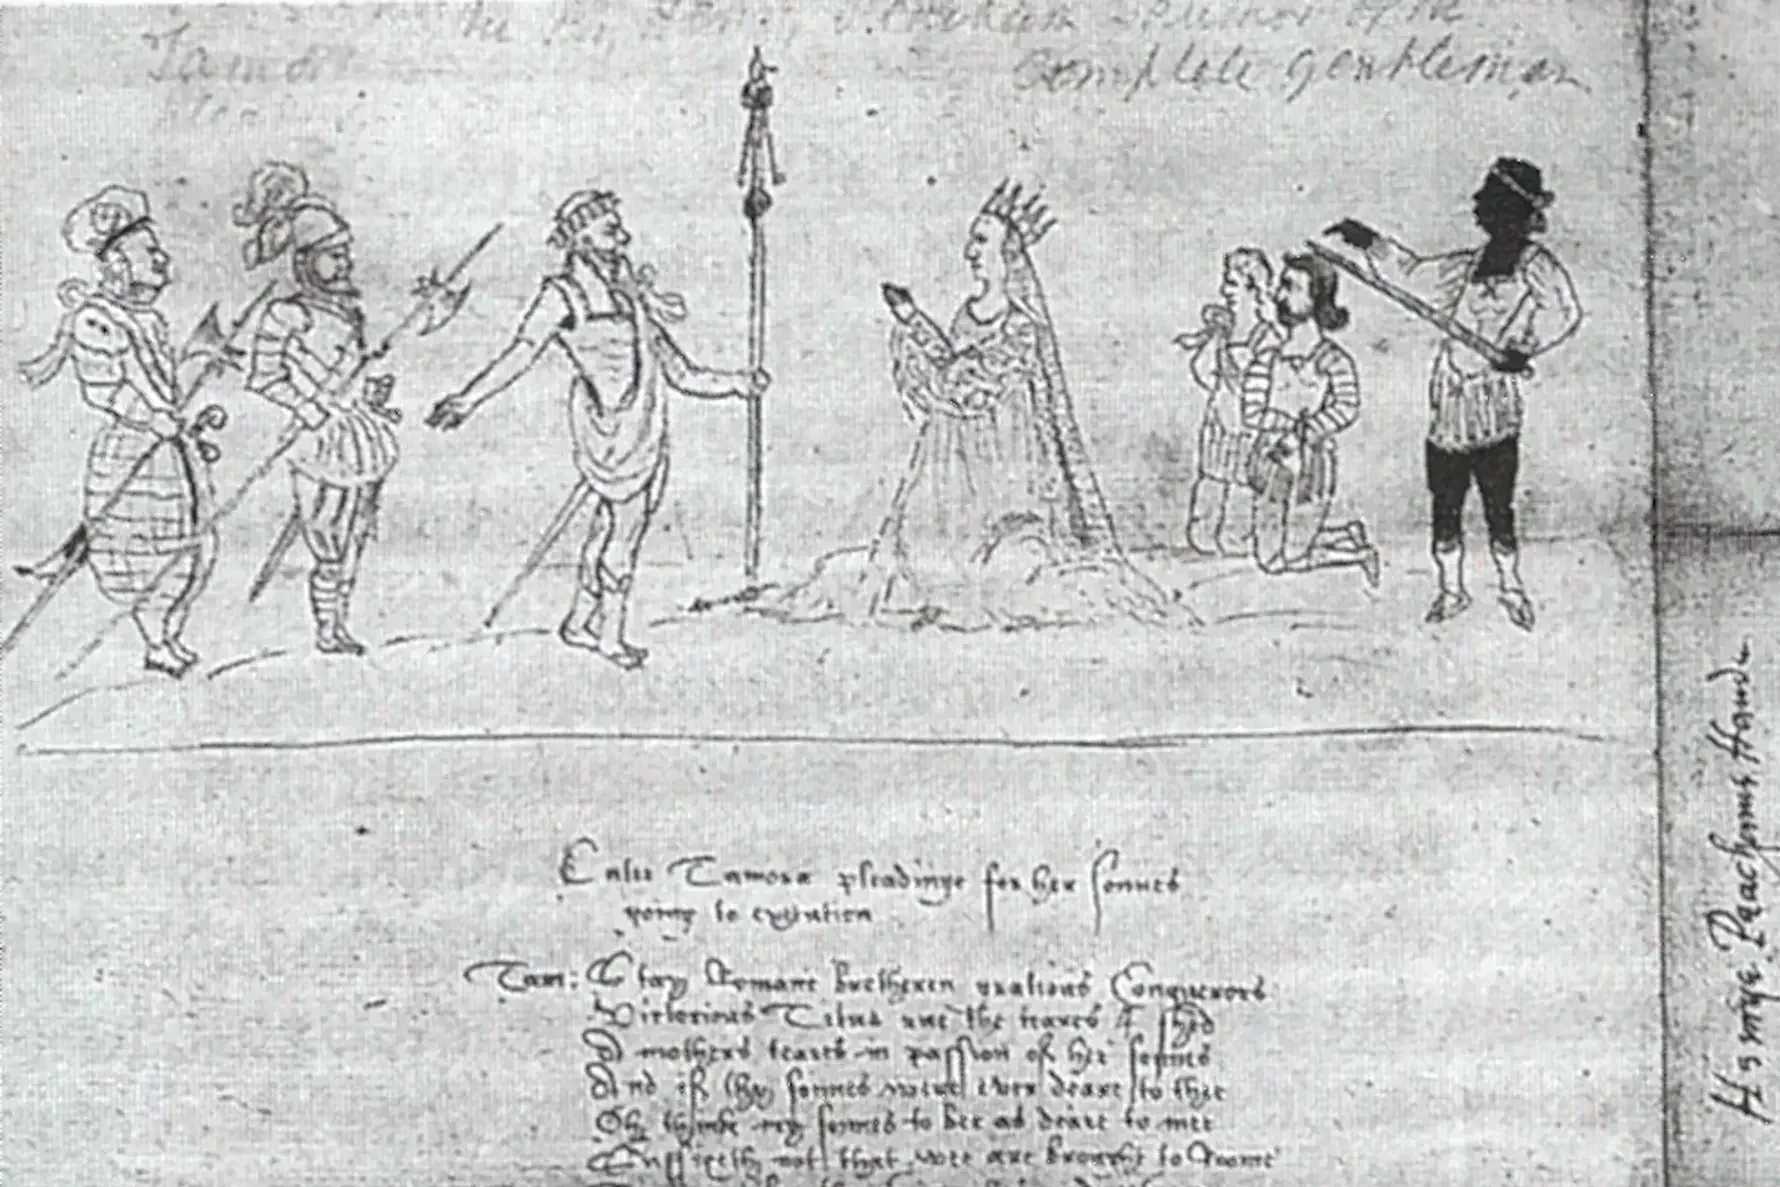 of the
Tamor
Complete gentleman
Enter Tamora pleadinge for her sonnes
going to execution
Tam: Stay Romane bretheren gratious Conquerors
Victorious Titus rue the teares I shed
A mothers teares in passion of her sonnes
And if thy sonnes were ever deare to thee
Oh thinke my sonnes to bee as deare to mee
Suffizeth not that wee are brought to Roome
Henrye Peachams Hande